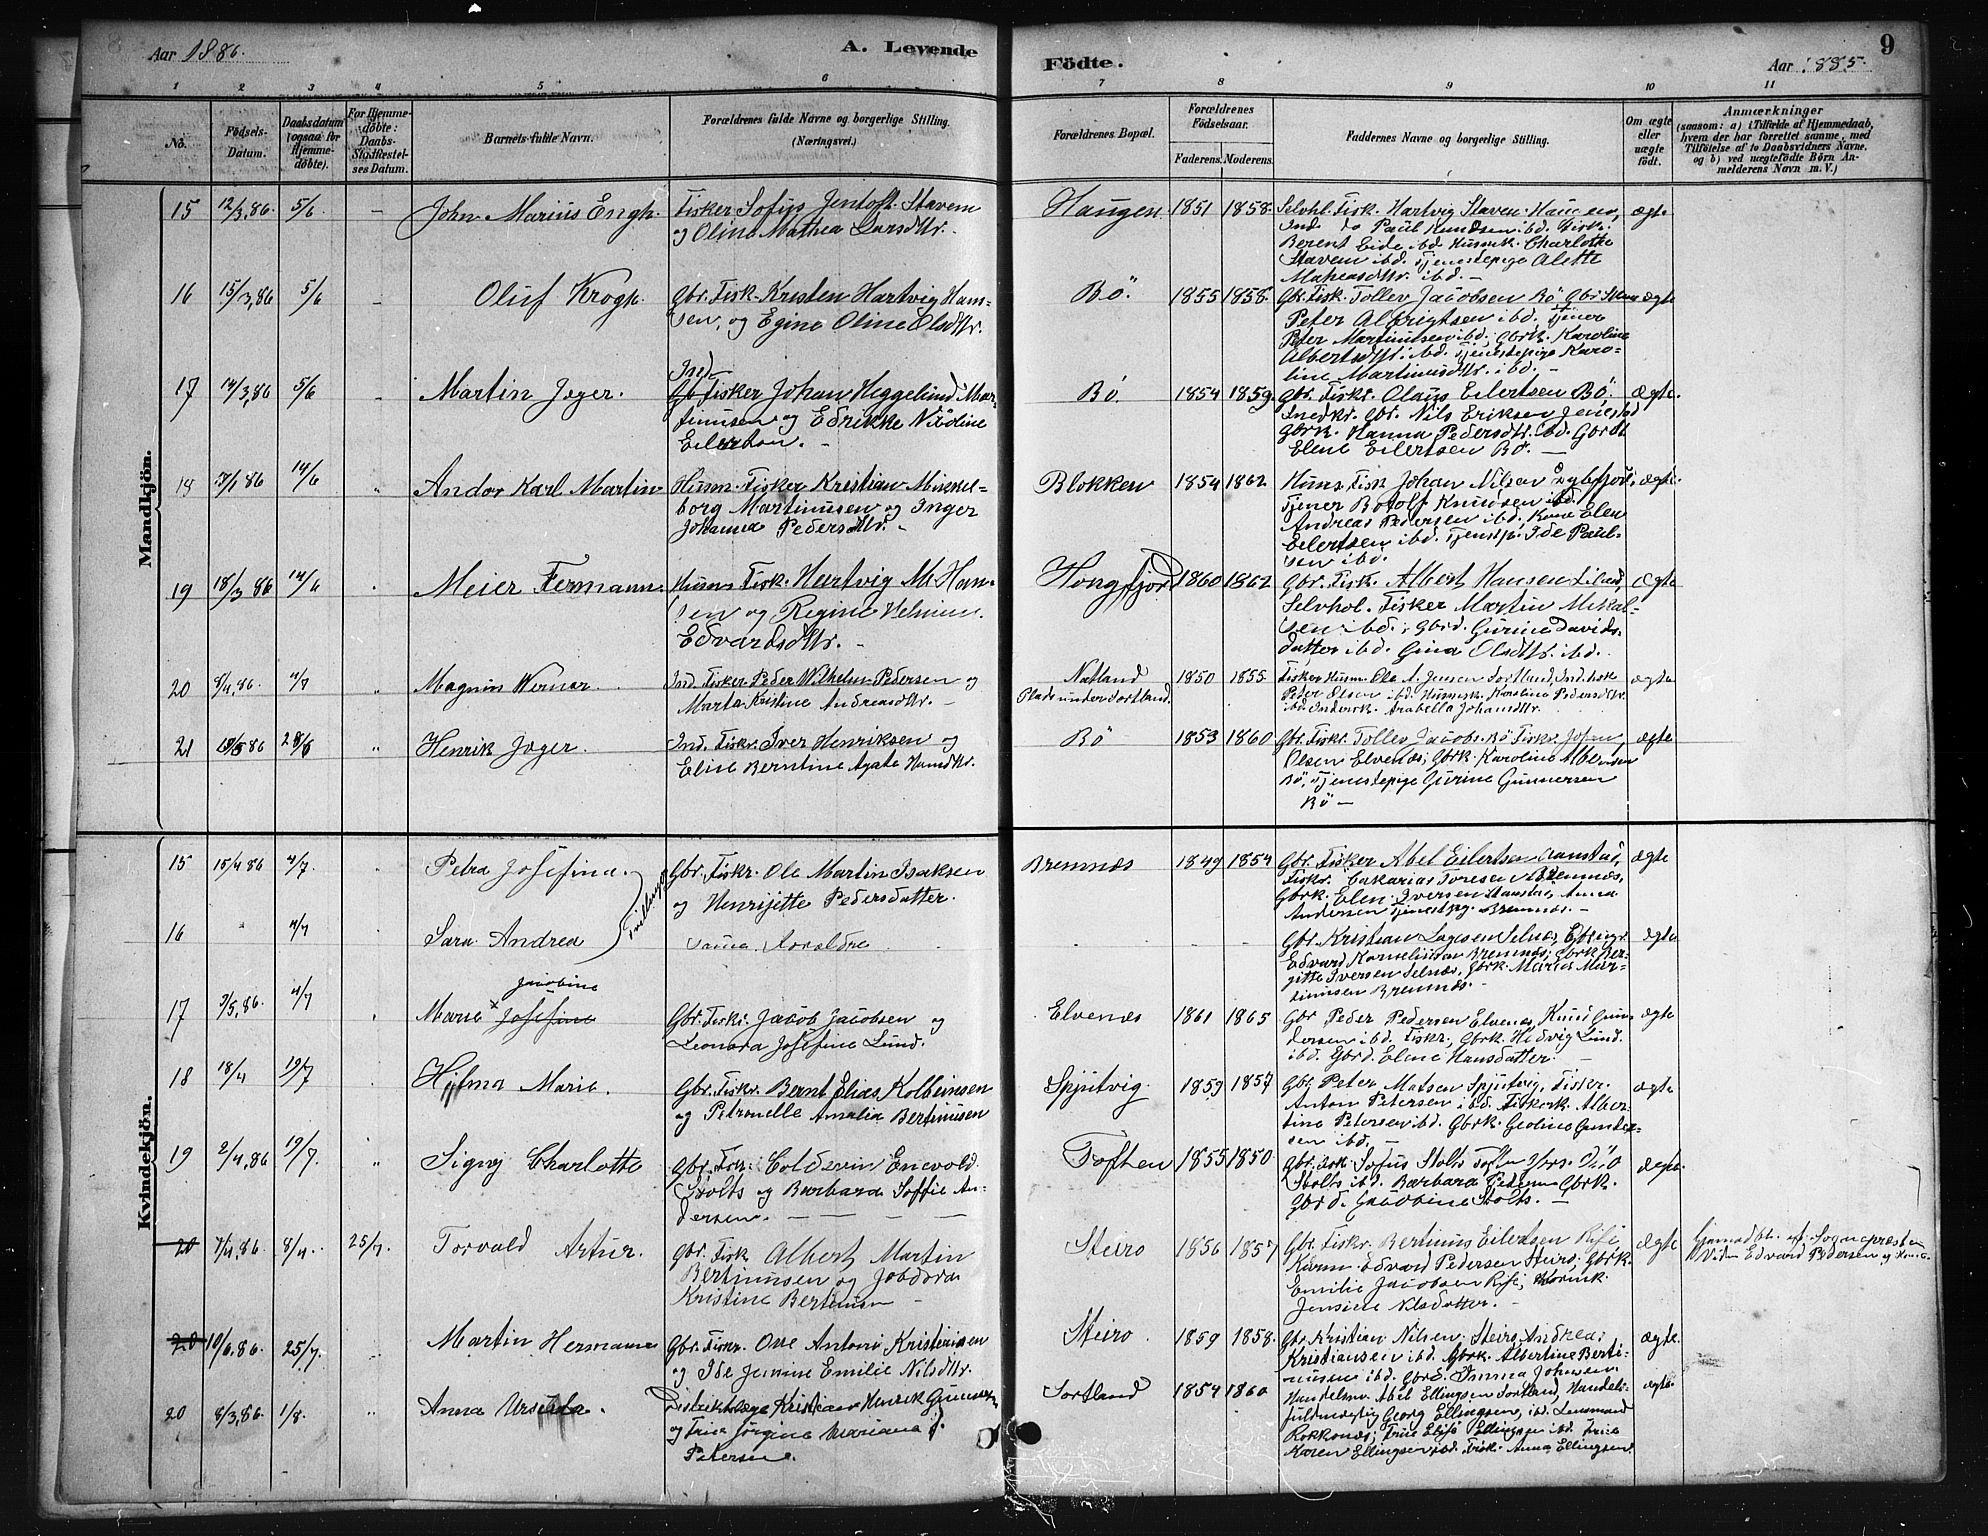 Aar 1886.
A. Levende
Födte.
9
Aar 1885.
1 2 3 4 5 6 7 8 9 10 11
No.
Födsels-
Datum.
Daabsdatum
(ogsaa for
Hjemme-
döbte).
For Hjemme-
döbte:
Daabs-
Stadfæstel-
ses Datum.
Barnets fulde Navn.
Forældrenes fulde Navne og borgerlige Stilling.
(Næringsvei.)
Forældrenes Bopæl.
Forældrenes
Födselsaar.
Faderens. Moderens.
Faddernes Navne og borgerlige Stilling.
Om ægte
eller
uægte
födt.
Anmærkninger
(saasom: a) i Tilfælde af Hjemmedaab,
hvem der har forrettet samme, med
Tilföielse af to Daabsvidners Navne,
og b) ved uægtefödte Börn An-
melderens Navn m. V.)
Mandkjön.
15 12/3,86. 5/6 – John Marius Engh. Fisker Sofus Jentoft Stavem
og Oline Mathea Larsdttr.
Haugen 1851 1858. Selvhl. Fisk. Hartvig Staven Haugen, ægte
Ind do Paul Knudsen ibd.
Berent Eide ibd. Husmk. Charlotte
Stavem ibd. Tjenestepige Alette
ibd. –
16 15/3,86 5/6 – Oluf Krogh. Gbr. Fisk. Kristen Hartvig Han-
sen, og Egine Oline Olsdttr.
Bö. 1855 1858. Gbr. Fisk. Tollev Jacobsen Bö, Gbr ægte
Peter Albrigtsen ibd. Tjener
Peter Martinusen ibd; Gbrk. Karoline
Albertsdttr. ibd. Tjenestepige Karo-
line Martinusdttr. ibd. –
17 14/3,86 5/6 – Martin Jæger. Ind.
Fisker Johan Heggelund Mar-
tinusen og Edrikke Nicoline
Bö. 1854 1859 Gbr. Fisk. Olaus Eilertsen Bö. ægte.
Indkr. Gbr. Nils Eriksen
Gbrk. Hanna Pedersdttr. ibd. Gbrdt
Elene Eilertsen Bö. –
18 7/1 86 14/6 " Andor Karl Martin Husm. Fisker Kristian
borg Martinusen og Inger
Johanna Pedersdttr. "
Blokken 1854 1862 Husm. Fisk Johan Nilsen ægte.
Tjener Botolf Knudsen ibd.
Andreas Pedersen ibd. Kone Elen
Eilertsen ibd. Tjenstp. Ide Paul-
sen ibd.
19 18/3 86 14/6 Meier Fermann. Husm Fisk. Hartvig M. Han-
sen og Regine
Edvardsdttr. –
Hongfjord 1860 1862 Gbr. Fisk. Albert Hansen ægte
Selvhol. Fisker Martin Mikal-
sen ibd.; Gbrd. Gurine Davids-
datter ibd. Gina Olsdttr. ibd.
20 8/4,86. 4/7 " Magnus Wernar. Ind. Fisker Peder Wilhelm Pedersen og
Marta Kristine Andreasdttr. –
Natland
Plads under Sortland. 1850 1855 Fisker Husm. Ole A. Jensen Sortland, Ind. fisk ægte
Peder Olsen ibd. Husmsk. Karoline Pedersdttr.
ibd. Arabella Johansdttr.
21 86 28/6 " Henrik Jæger. Ind. Fiskr. Iver Henriksen og
Elise Berntine Agate
Bö 1853 1860 Gbr. Fiskr. Tollev Jacobs. Bö Fiskr. ægte
Olsen Elvenæs; Gbrk. Karoline
Bö, Tjenestepige Gurine Gunnersen
Bö –
Kvindekjön.
15 15/4 86 4/7 " Petra Josefine. Gbr. Fiskr. Ole Martin Isaksen
og Henrijette Pedersdatter.
Tvillinger
Bremnæs 1849 1854 Gbr. Fisker Abel Eilertsen ægte
Fiskr. Sakarias Toresen Bremnæs,
Gbrk. Elen Iversen Anna
Andersen Tjenestpg. Bremnæs. –
16 " 4/7 Sara Andrea Samme Forældre
Gbr. Kristian Lagesen Selnæs, ægte
Edvard Kornelissen Bremnæs; Gbrk. Ber-
gitte Iversen Selnæs, Gbrk. Marie Mar-
tinusen Bremnæs. –
17 3/5,86. 4/7 Marie Josefine Jacobine Gbr. Fiskr. Jacob Jacobsen og
Leonora Josefine Lund.
Elvenæs 1861 1865 Gbr Peder Pedersen Elvenæs, Knud Gun- ægte
dersen ibd. Fiskr., Gbrk. Hedvig Lund.
ibd. Gbrd. Elene Hansdatter. –
18 18/4 19/7 Hjlma Marie. Gbr. Fiskr. Bernt Elias Kolbeinsen
og Petronelle Amalia Bertinusen
Spjutvig. 1859 1857 Gbr. Peter Matsen Spjutvig, Fisker ægte
Anton Petersen ibd. Fiskerk. Alber-
tine Petersen ibd. Gbrk. Geoline Gunder-
sen ibd. –
19 2/4,86 19/7. " Signy Charlotte Gbr. Fskr. Coldevin Enevold
Stolts og Barbara Soffie An-
dersen. – – –
Toften 1855 1850 Gbr. Fisk Sofus Stolts Toften ægte.
Stolts ibd. Barbara Gbrk.
Gbrd. Jacobine Stolts. –
20 7/4,86. 8/4. 25/7 Torvald Artur. Gbr. Fisk Albert Martin
Bertinusen og
Kristine Bertinusen –
Steiro 1856 1857 Gbr. Fiskr. Bertinus Eilertsen ægte
Edvard Pedersen Steiro; Gbrk.
Emilie Jacobsen
Jensine Nilsdatter. –
hjemmedbt. af Sognepræsten
Vidne Edvard Pedersen og Kone
20 10/6,86. 25/7. Martin Hermann Gbr. Fiskr. Ove Antoni Kristensen
og Ide Jemine Emilie Nilsdttr.
Steiro. 1859 1858. Gbr. Kristian Nilsen Steiro, Andreas ægte.
Kristiansen ibd. Gbrk. Albertine Berti-
nusen ibd. Gbrd. Johnsen
20 8/3,86. 1/8. " Anna Ursella. Distriktslæge Kristian Henrik
og Frue Jörgine Mariane f.
Petersen.
Sortland 1854 1860 Handelsm. Abel Ellingsen Sortland, Handels- ægte
fuldmægtig Georg Ellingsen, ibd. Lensmand
Rokkonæs; Frue Elise Ellingsen ibd. Frue
Karen Ellingsen ibd. Frøk. Anna Ellingsen.